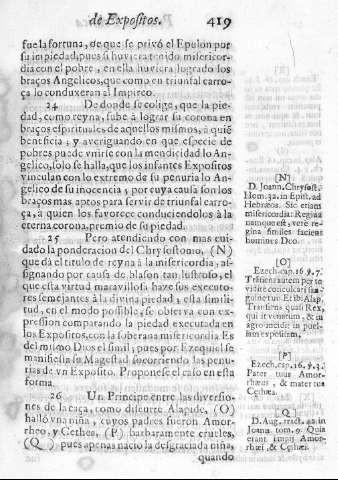 de Expositos. 419
fue la fortuna, de que se privó el Epulon por
su impiedad, pues si huviera tenido misericor-
dia con el pobre, en ella huviera logrado los
braços Angelicos, que como en triunfal carro-
ça lo conduxeran al Impireo.
24 De donde se colige, que la pie-
dad, como reyna, sube à lograr su corona en
braços espirituales de aquellos mismos, à quiè
beneficia; y averiguando en que especie de
pobres puede vnirse con la mendicidad lo An-
gelico, solo se halla, que los infantes Expositos
vinculan con lo extremo de su penuria lo An-
gelico de su inocencia; por cuya causa son los
braços mas aptos para servir de triunfal carro-
ça, à quien los favorece conduciendolos à la
eterna corona, premio de su piedad.
25 Pero atendiendo con mas cui-
dado la ponderacion del Chrysostomo, (N)
que dà el titulo de reyna à la misericordia; as-
signando por causa de blason tan lustroso, el
que esta virtud maravillosa haze sus executo-
res semejantes à la divina piedad; esta simili-
tud, en el modo possible, se observa con ex-
pression comparando la piedad executada en
los Expositos, con la soberana misericordia. Es
del mismo Dios el simil, pues por Ezequiel se
manifiesta su Magestad socorriendo las penu-
rias de vn Exposito. Proponese el caso en esta
forma.
26 Un Principe entre las diversio-
nes de la caça, como discurre Alapide, (O)
hallò vna niña, cuyos padres fueron Amor-
rheo, y Cethea, (P) barbaramente crueles,
(Q) pues apenas naciò la desgraciada niña,
quando
[N]
D. Joann. Chrysost.
Hom. 32. in Epist. ad
Hebræos. Sic etiam
misericordia: Regina
namque est, verè re-
gina similes faciens
homines Deo.
[O]
Ezech. cap. 16. ℣. 7.
Transiens autem per te
vidi te conculcari in san-
guine tuo. Et ibi Alap.
Transiens quasi Rex,
qui it venatum, &amp; in
agro incidit in puel-
lam expositam.
[P]
Ezech. cap. 16. ℣. 3.
Pater tuus Amor-
rhæus, &amp; mater tua
Cethæa.
Q
D. Aug. tract. 42. in
Joann. tom. 9. Quia
erant impij Amor-
rhæi, &amp; Cethæi.